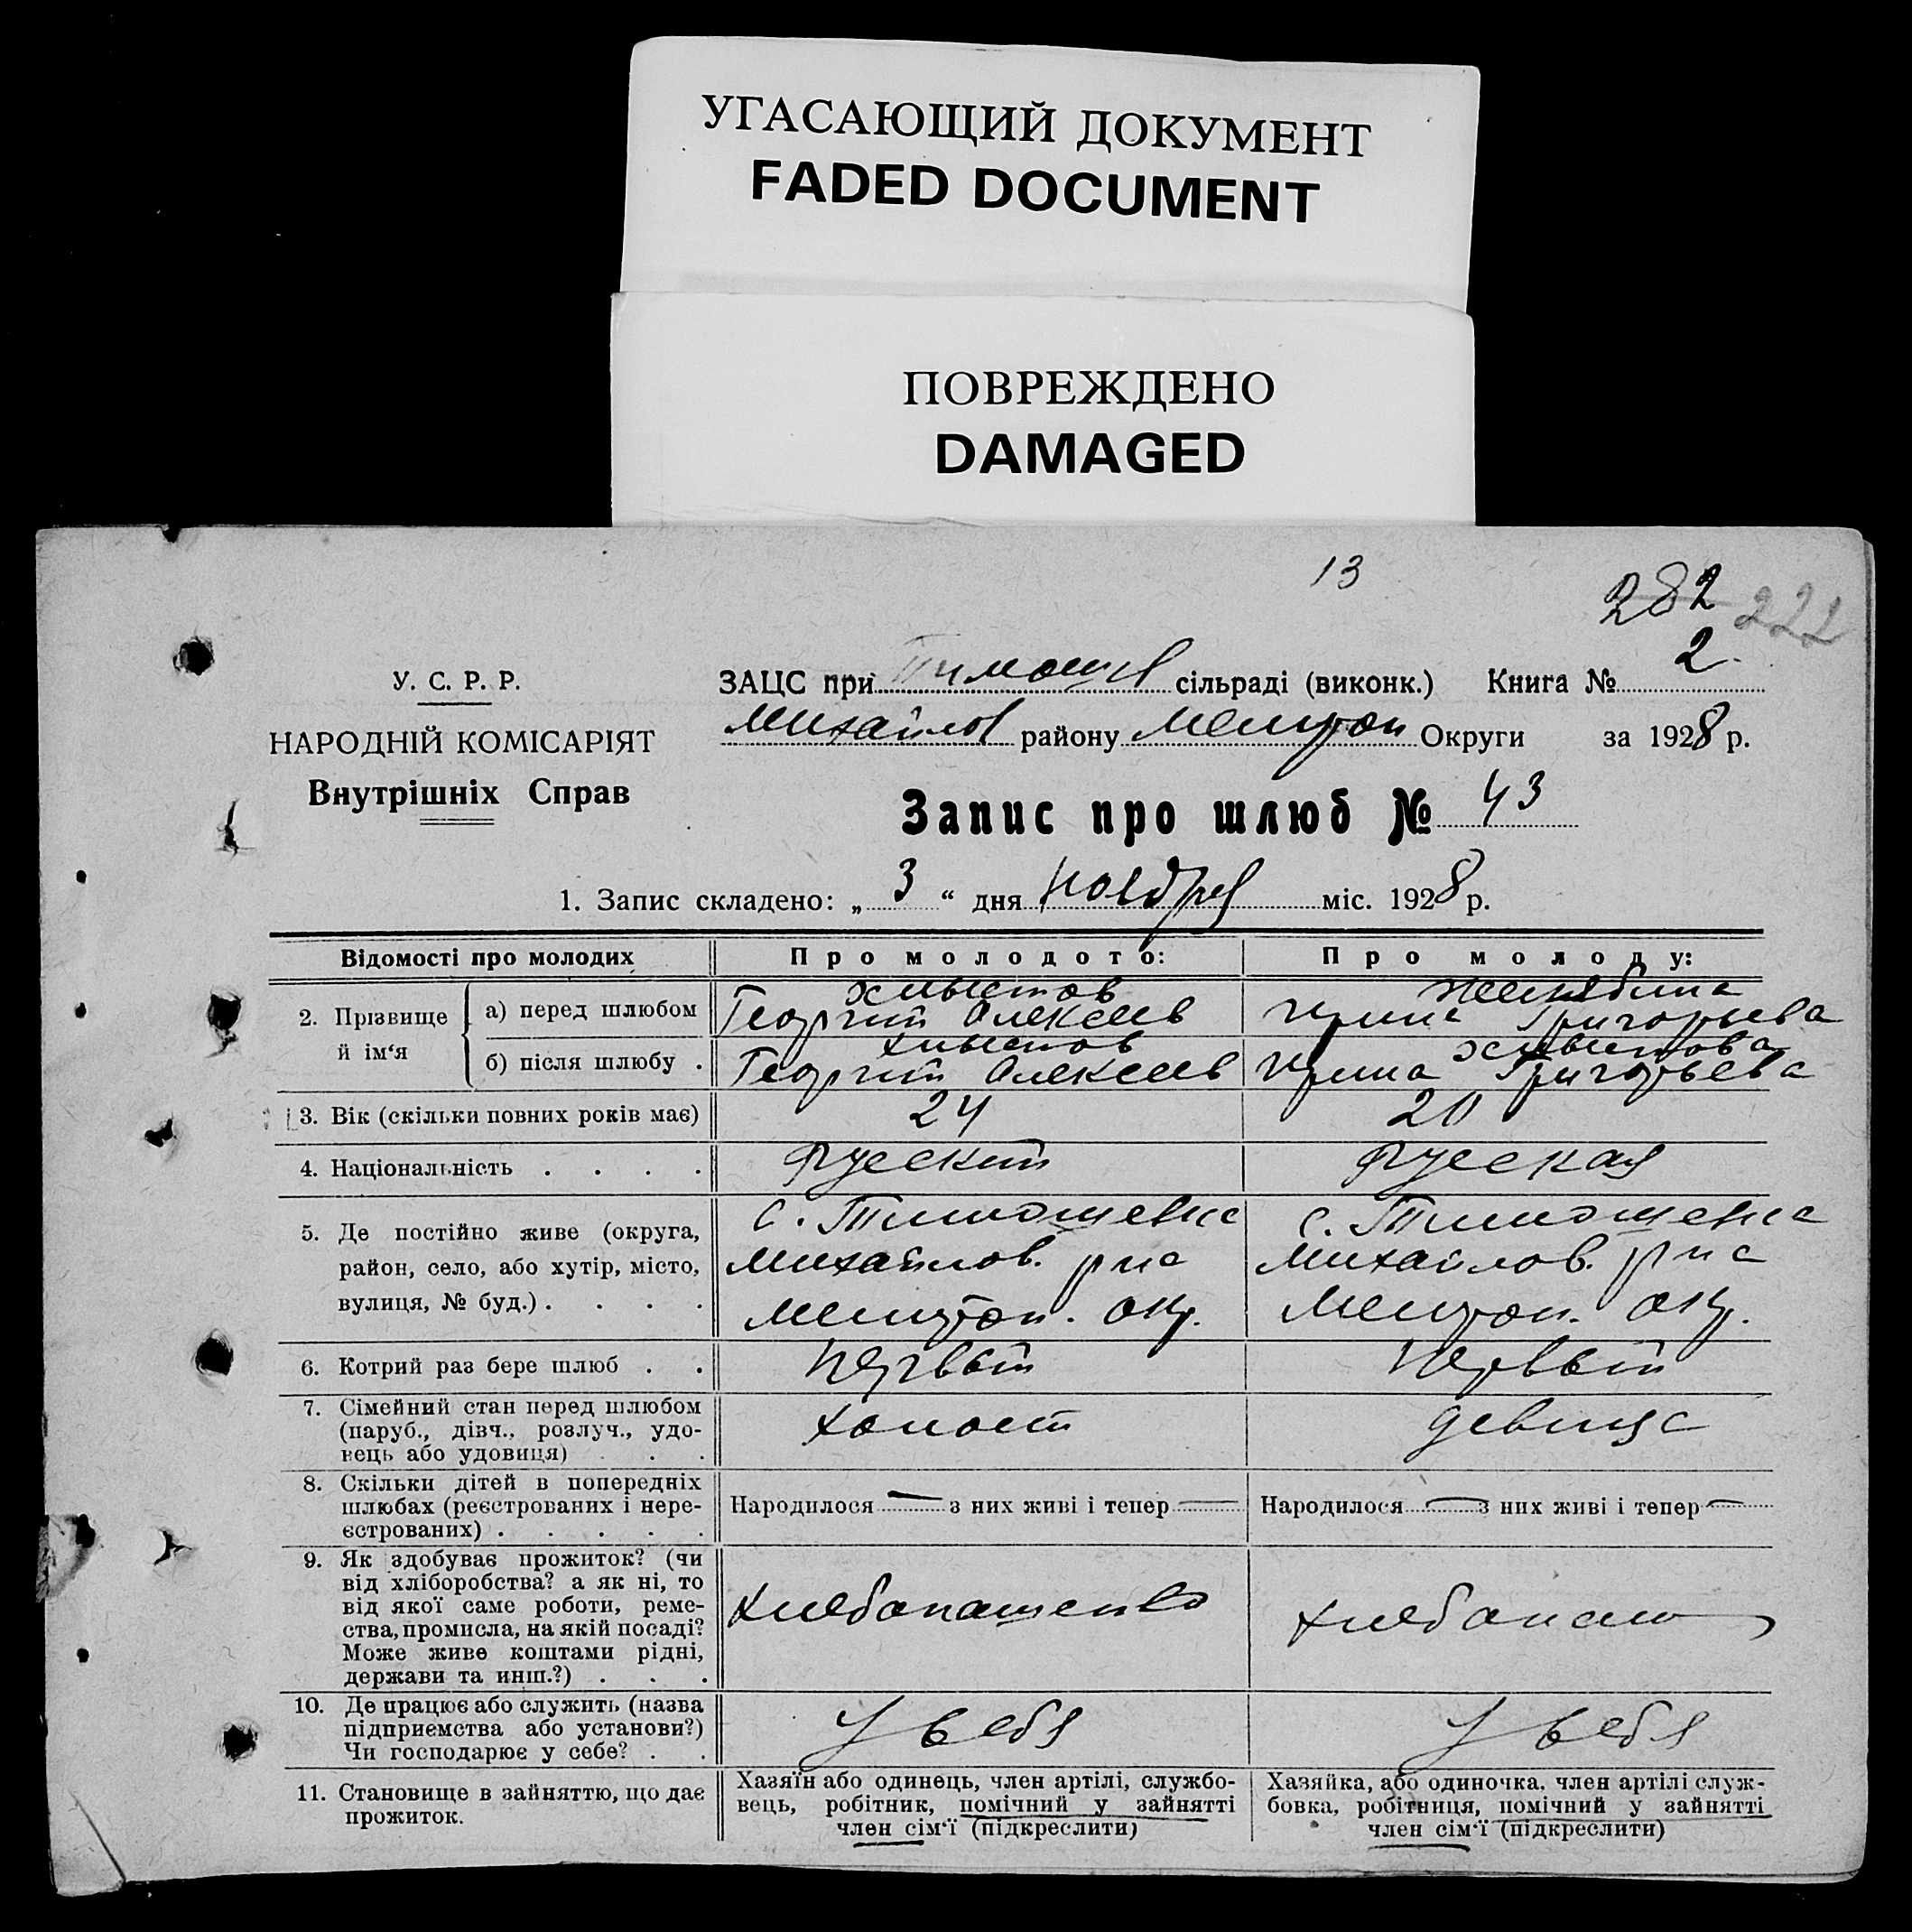 УГАСАЮЩИЙ ДОКУМЕНТ
FADED DOCUMENT
ПОВРЕЖДЕНО
DAMAGED
13
282 222
У. С. Р. Р.
НАРОДНІЙ КОМІСАРІЯТ
Внутрішніх Справ
ЗАЦС при Тимошев сільраді (виконк.) Книга № 2
Михайлов району Мелитоп Округи за 1928 р.
Запис про шлюб № 43
1. Запис складено: „ 3 “ дня ноября міс. 1928 р.
Відомості про молодих Про молодого: Про молоду:
2. Прізвище й ім‘я
а) перед шлюбом Хлыстов Георгий Алексеев Ирина Григорьева
б) після шлюбу . Хлыстов Георгий Алексеев Хлыстова Ирина Григорьева
3. Вік (скільки повних років має) 24 20
4. Національність . . . . Русский Русская
5. Де постійно живе (округа, с. Тимошевка с. Тимошевка
район, село, або хутір, місто, Михайлов. р на Михайлов. р на
вулиця, № буд.) . . . . Мелитоп. окр. Мелитоп. окр.
6. Котрий раз бере шлюб . . Первый Первый
7. Сімейний стан перед шлюбом
(паруб., дівч., розлуч., удо-
вець або удовиця) . . . холост девица
8. Скільки дітей в попередніх
шлюбах (реєстрованих і нере-
єстрованих) . . . . .
Народилося — з них живі і тепер — Народилося — з них живі і тепер —
9. Як здобуває прожиток? (чи
від хліборобства? а як ні, то
від якої саме роботи, реме-
ства, промисла, на якій посаді?
Може живе коштами рідні,
держави та инш.?) . . .
Хлебопашенство хлебопаш
10. Де працює або служить (назва
підприємства або установи?)
Чи господарює у себе? . .
У себя У себя
11. Становище в зайняттю, що дає
прожиток.
Хазяїн або одинець, член артілі, службо-
вець, робітник, помічний у зайнятті
член сім‘ї (підкреслити)
Хазяйка, або одиночка, член артілі служ-
бовка, робітниця, помічний у зайнятті
член сім‘ї (підкреслити)